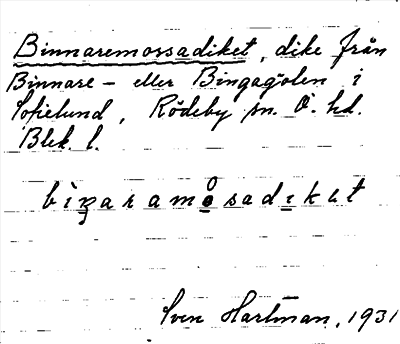 Binnaremossadiket, dike från
Binnare- eller Bingagölen i
Sofielund, Rödeby sn. Ö. hd.
Blek. l.
Sven Hartman, 1931